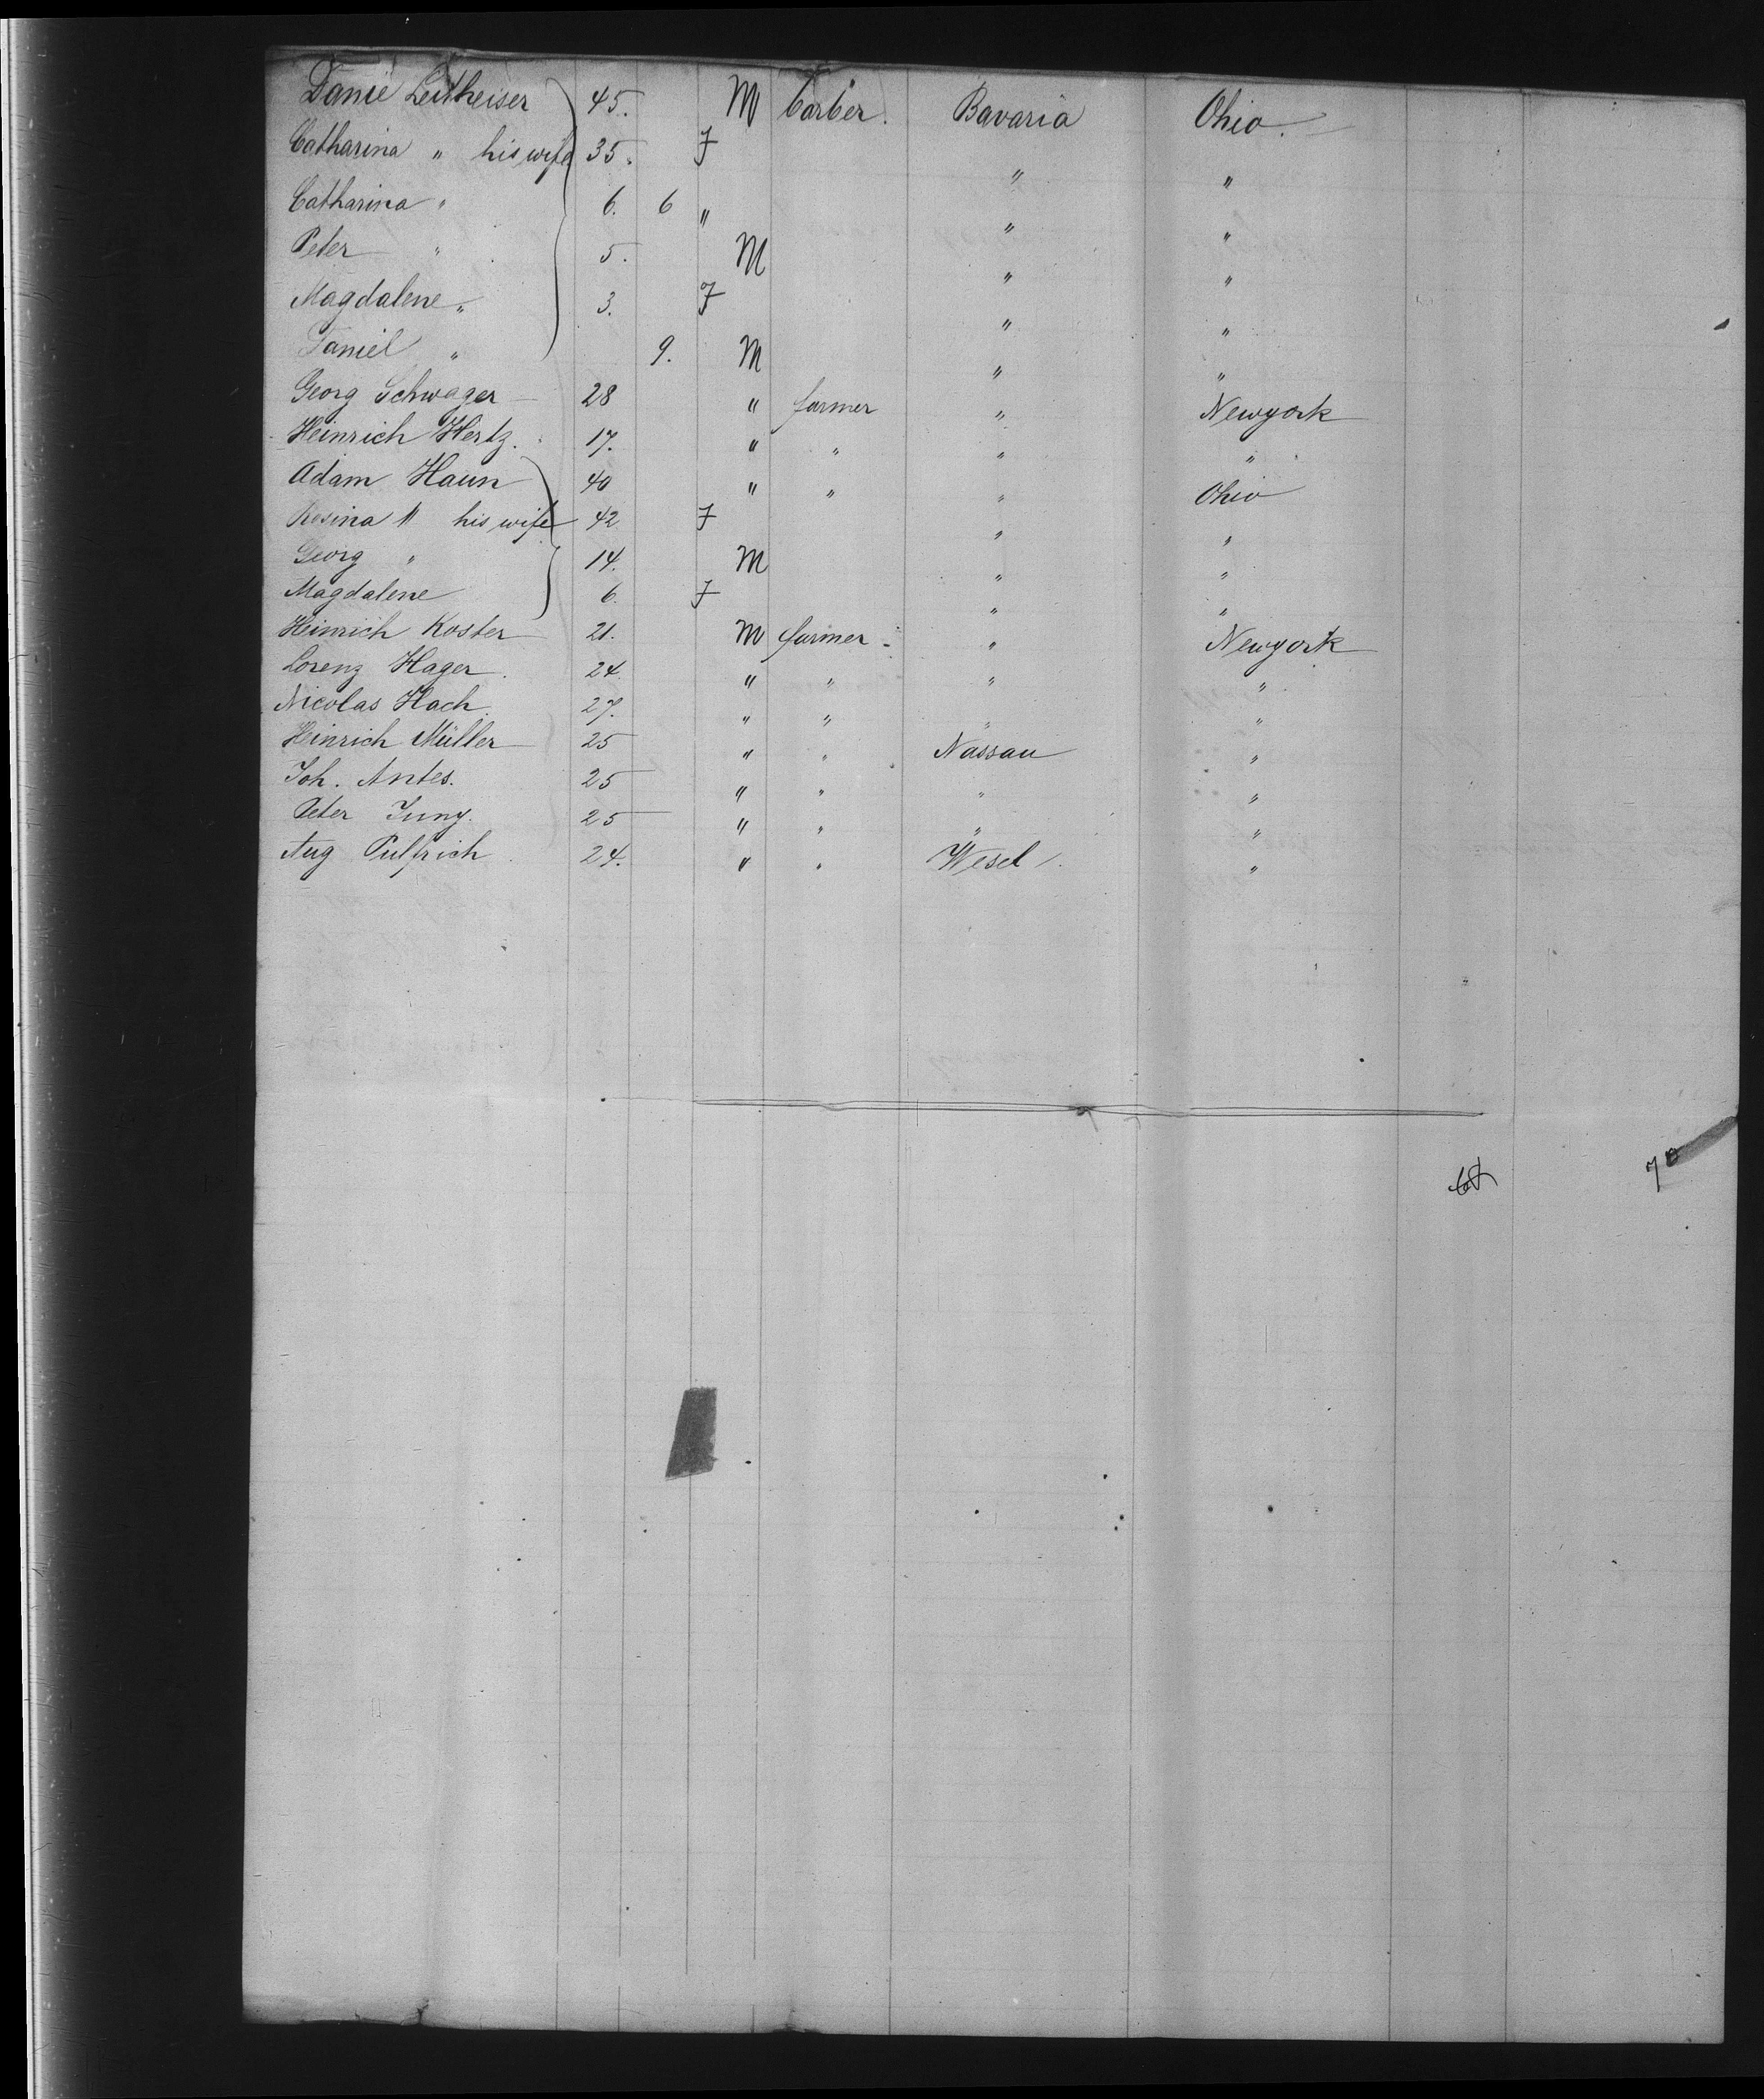 Daniel Leitheiser 45. M barber. Bavaria Ohio.
Catharina " his wife 35. F " "
Catharina " 6. 6 " " "
Peter " 5. M " "
Magdalene " 3. F " "
Daniel " 9. M " "
Georg Schwager 28 " farmer " Newyork
Heinrich Hertz. 17. " " " "
Adam Haun 40 " " " Ohio
Rosina " his wife 42 F " "
Georg " 14. M " "
Magdalene 6. F " "
Heinrich Koster 21. M farmer - " Newyork
Lorenz Hager. 24. " " " "
Nicolas Hach. 27. " " " "
Heinrich Müller 25 " " Nassau "
Joh. Antes. 25 " " " "
Peter Jung. 25 " " " "
Aug Pulfrich. 24. " " Wesel. "
70